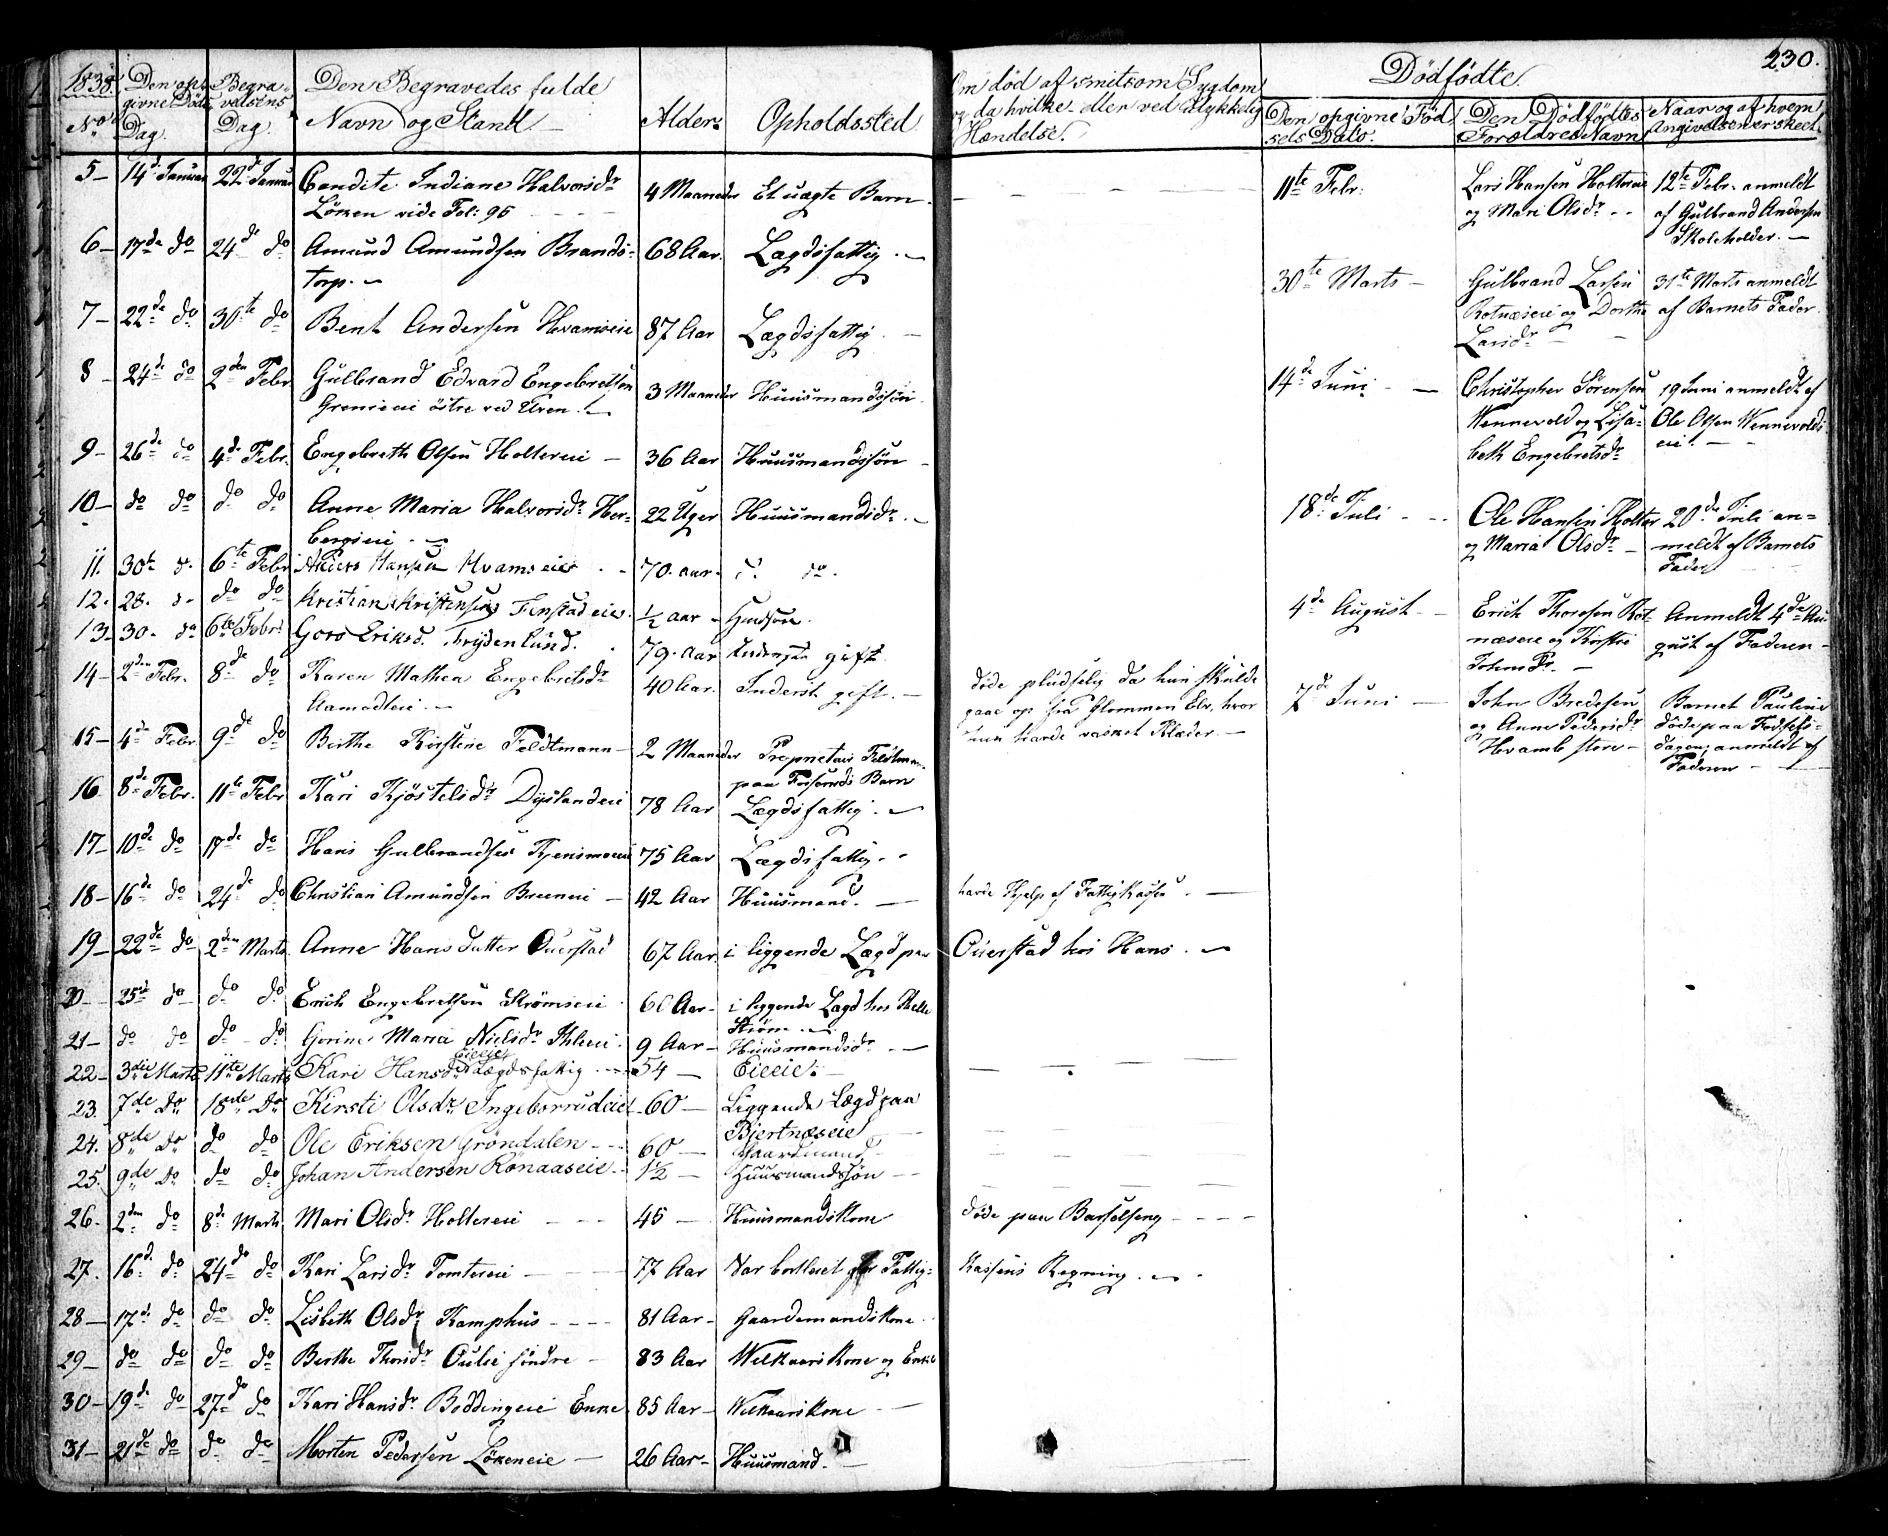 230.
1838. Den op- Begra- Den Begravedes fulde Om död af smitsom Sygdom Dödfödte.
givne Döds velsens og da hvilke eller ved ulykkelig Den opgivne Föd- Den Dödfödtes Naar og af hvem
No Dag. Dag. Navn og Stand Alder. Opholdssted Hændelse. sels Dato. Forældres Navn Angivelsen er skeet.
5 14de Januar 22de Januar Candite Indiane Halvorsdr 4 Maaneder Et uægte Barn
Löken vide Fol: 95
6 17de do 24de do Amund Amundsen Brands- 68 Aar. Lægdsfattig
torp.
7 22de do 30te do Bent Andersen Hvamseie 87 Aar Lægdsfattig
8 24de do 2den Febr Gulbrand Edvard Engebretsen 3 Maaneder Huusmandssön
östre ved Elven
9 26de do 4de Febr. Engebreth Olsen Haltereie 36 Aar Huusmandssön
10 do do do do Anne Maria Halvorsdr Her- 22 Uger Huusmandsdr.
bergseie
11. 30te do 6te Febr Anders Hansen Hvamseie 70. aar. do do.
12. 28. do do Kristian Kristensen Finstadeie. ½ aar
13 30. do 6te Febr. Goro Eriksd. Frydenlund. 79. aar gift
14 2den Febr. 8de do Karen Mathea Engebretsdr 40 Aar. Inderst gift.
Aamodteie
15 4de Febr 9de do Birthe Kirstine Feldtmann 2 Maaneder Proprietair Feldtmann
paa Fossums Barn
16 8de Febr. 11te Febr Kari Kjöstelsdr Dyslandeie 78 Aar Lægdsfattig.
17 10de do 17de do Hans Gulbrandsen 75 Aar Lægdsfattig
18 16de do 24de do Christian Amundsen 42 Aar Huusmand. havde Hjelp af Fattigkassen
19 22de do 2den Marts Anne Hansdatter Ouerstad 67 Aar. i liggende Lægd paa Ouerstad hos Hans.
20 25de do do do Erich Engebretsen Strömseie 60 Aar i liggende Lægd hos Helle
Ström
21 do do do do Gorine Maria Nielsdr Ihleeie 9 Aar Huusmandsdr.
Eieeie
22 3die Marts 11te Marts Kari Hansdr Lægdsfattig 54 Eieeie.
23. 7de do 18de do Kirsti Olsdr Ingeborrudeie 60 Liggende Lægd paa
Bjertnæseie
24. 8de do do do Ole Eriksen Gröndalen 60 Gaardmand
25. 9de do do do Johan Andersen Rönaaseie 1½ Huusmandssön
26. 2den do 8de Marts Mari Olsdr Haltereie 45 Huusmandskone döde paa Barselseng
27. 16de do 24de do Kari Larsdr Tomtereie 77 Aar Var bortleiet for Fattig- Kassens Regning.
28 17de do do do Lisbeth Olsdr Kamphus 81 Aar Gaardemandskone
29 do do do do Berthe Thorsdr Oulie söndre 83 Aar Wilkaarskone og Enke
30 19de do 27de do Kari Hansdr Boddingeie Enke 85 Aar Wilkaarskone
31 21de do do do Morten Pedersen Lökeneie 26 Aar Huusmand.
döde pludselig da hun skulde
gaae op fra Glommen Elv, hvor
hun havde vasket Klæder.
11te Febr. Lars Hansen Haltereie 12te Febr. anmeldt
og Mari Olsdr af Gulbrand Andersen
Skoleholder.
30te Marts Gulbrand Larsen 31te Marts anmeldt
Rotnæseie og Dorthe af Barnets Fader.
Larsdr
14de Juni Christopher Sörensen 19 Juni anmeldt af
Wennevold og Lisa- Ole Olsen Wennevolds
beth Engebretsdr eie.
18de Juli Ole Hansen Holter 20de Juli an-
og Maria Olsdr meldt af Barnets
Fader
4de August Erich Thoresen Rot- Anmeldt 4de Au-
næseie og Kirsti gust af Faderen
Johnsdr.
7de Juni John Bredesen Barnet Pauline
og Anne Pedersdr döde paa Födsels-
Hvambstore dagen; anmeldt af
Faderen